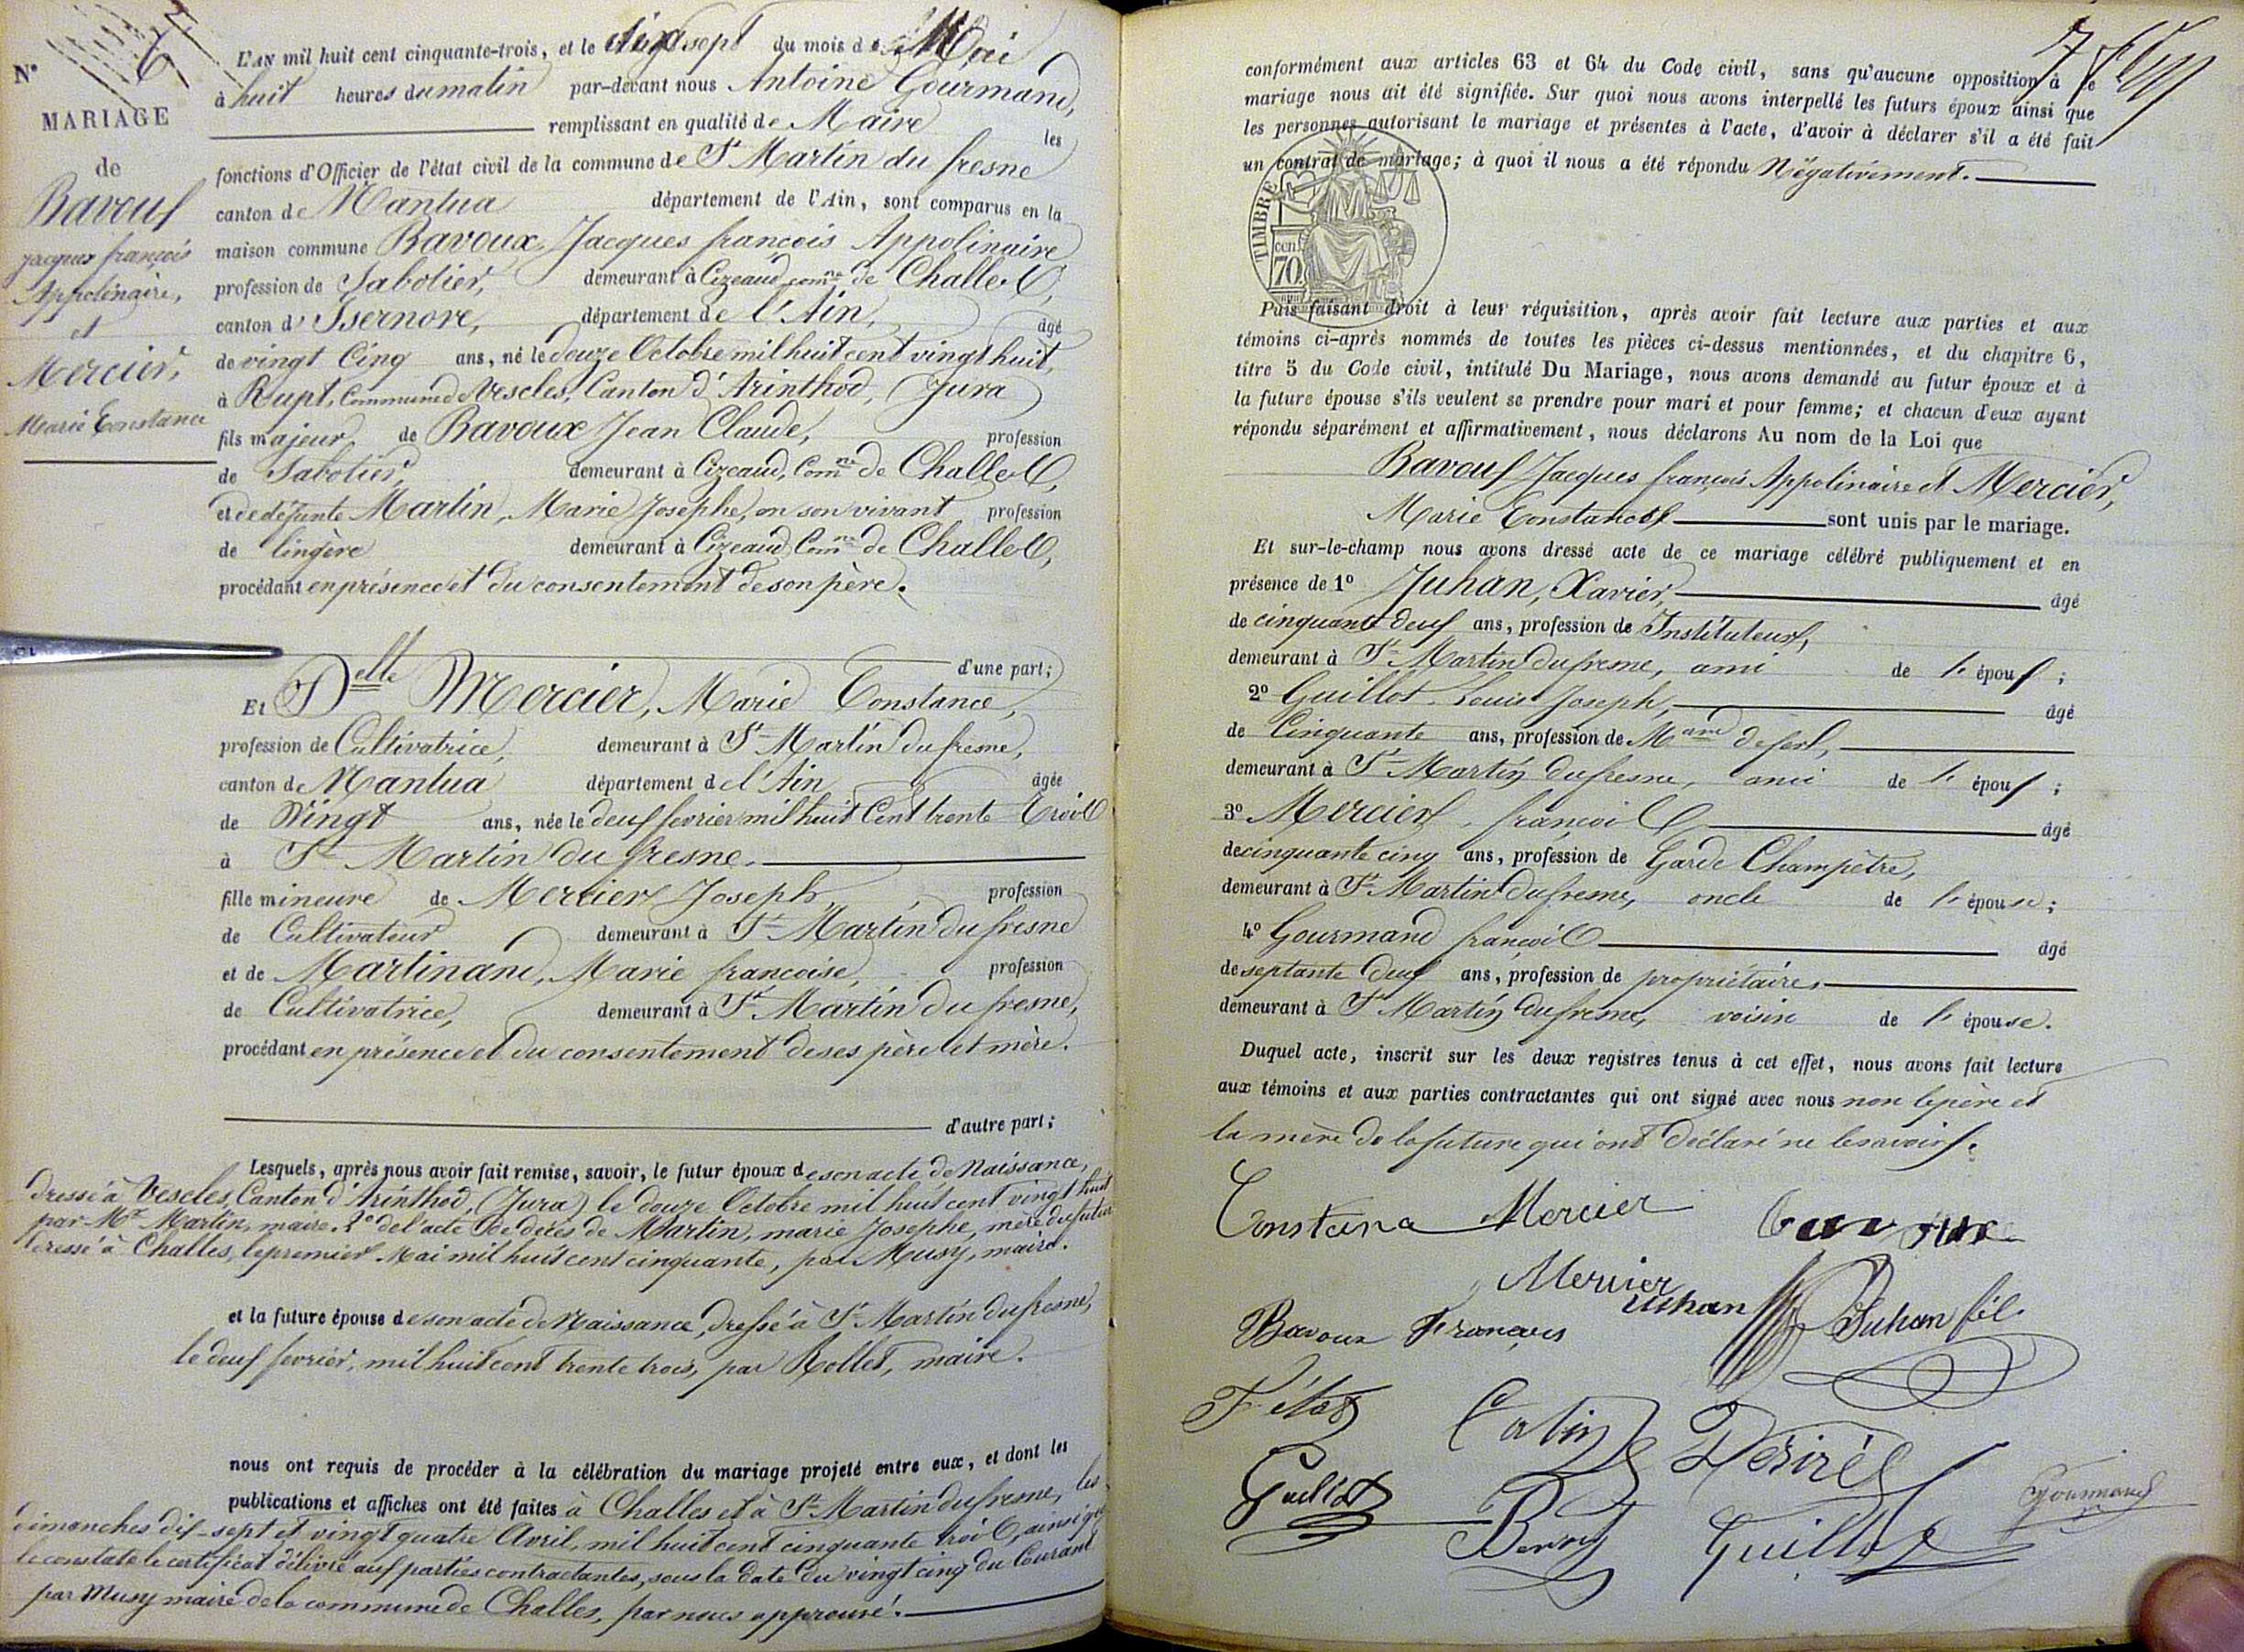 N° 6
MARIAGE
de
Bavoux
Jacques françois
Appolinaire,
et
Mercier,
Marie Constance
L'AN mil huit cent cinquante-trois, et le dix sept du mois de Mai
à huit heures du matin par-devant nous Antoine Gourmand,
remplissant en qualité de Maire les
fonctions d'Officier de l'état civil de la commune de St Martin du fresne
canton de Nantua département de l'Ain, sont comparus en la
maison commune Bavoux, Jacques françois Appolinaire
profession de Sabotier, demeurant à Cizeaud comne de Challes,
canton d'Isernore, département de l'Ain, âgé
de vingt Cinq ans, né le douze Octobre mil huit cent vingt huit,
à Rupt, Commune de Vescles, Canton d'Arinthod, (Jura)
fils majeur de Bavoux Jean Claude, profession
de Sabotier, demeurant à Cizeaud, Comne de Challes,
et de défunte Martin, Marie Josephe, en son vivant profession
de lingère demeurant à Cizeaud Comne de Challes,
procédant en présence et du consentement de son père.
d'une part;
Et Delle Mercier, Marie Constance,
profession de Cultivatrice, demeurant à St Martin du fresne,
canton de Nantua département de l'Ain âgée
de Vingt ans, née le deux fevrier mil huit Cent trente Trois
à St Martin du fresne.
fille mineure de Mercier Joseph, profession
de Cultivateur demeurant à St Martin du fresne
et de Martinand, Marie françoise, profession
de Cultivatrice, demeurant à St Martin du fresne,
procédant en présence et du consentement de ses père et mère.
d'autre part;
Lesquels, après nous avoir fait remise, savoir, le futur époux de son acte de Naissance,
dressé à Vescles, Canton d'Arinthod, (Jura) le douze Octobre mil huit cent vingt huit
par Mr Martin, maire. 2° de l'acte de décès de Martin, marie Josephe, mère du futur
dressé à Challes, le premier Mai mil huit cent cinquante, par Musy, maire.
et la future épouse de son acte de Naissance, dressé à St Martin du fresne,
le deux fevrier, mil huit cent trente trois, par Rollet, maire.
nous ont requis de procéder à la célébration du mariage projeté entre eux, et dont les
publications et affiches ont été faites à Challes et à St Martin du fresne, les
dimanches dix-sept et vingt quatre Avril, mil huit cent cinquante trois, ainsi que
le constate le certificat délivré aux parties contractantes, sous la date du vingt cinq du Courant
par Musy maire de la commune de Challes, par nous approuvé.
7
conformément aux articles 63 et 64 du Code civil, sans qu'aucune opposition à ce
mariage nous ait été signifiée. Sur quoi nous avons interpellé les futurs époux ainsi que
les personnes autorisant le mariage et présentes à l'acte, d'avoir à déclarer s'il a été fait
un contrat de mariage; à quoi il nous a été répondu Négativement.
TIMBRE
cent.
70
Puis faisant droit à leur réquisition, après avoir fait lecture aux parties et aux
témoins ci-après nommés de toutes les pièces ci-dessus mentionnées, et du chapitre 6,
titre 5 du Code civil, intitulé Du Mariage, nous avons demandé au futur époux et à
la future épouse s'ils veulent se prendre pour mari et pour femme; et chacun d'eux ayant
répondu séparément et affirmativement, nous déclarons Au nom de la Loi que
Bavoux Jacques françois Appolinaire et Mercier,
Marie Constance sont unis par le mariage.
Et sur-le-champ nous avons dressé acte de ce mariage célébré publiquement et en
présence de 1° Juhan, Xavier, âgé
de cinquante deux ans, profession de Instituteur,
demeurant à St Martin du fresne, ami de l'époux;
2° Guillot Louis Joseph, âgé
de Cinquante ans, profession de Mand de fer,
demeurant à St Martin du fresne, ami de l'époux;
3° Mercier, françois âgé
de cinquante cinq ans, profession de Garde Champêtre,
demeurant à St Martin du fresne, oncle de l'épouse;
4° Gourmand françois âgé
de septante deux ans, profession de propriétaire,
demeurant à St Martin du fresne, voisin de l'épouse.
Duquel acte, inscrit sur les deux registres tenus à cet effet, nous avons fait lecture
aux témoins et aux parties contractantes qui ont signé avec nous non le père et
la mère de la future qui ont déclaré ne le savoir.
Constance Mercier Bavoux
Mercier
Juhan Juhan fils
Bavoux François
Désirée
Guillot Guillot Gourmand